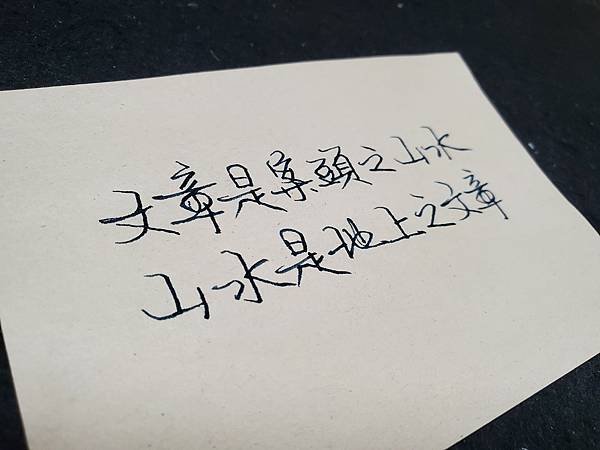 文章是案頭之山水
山水是地上之文章